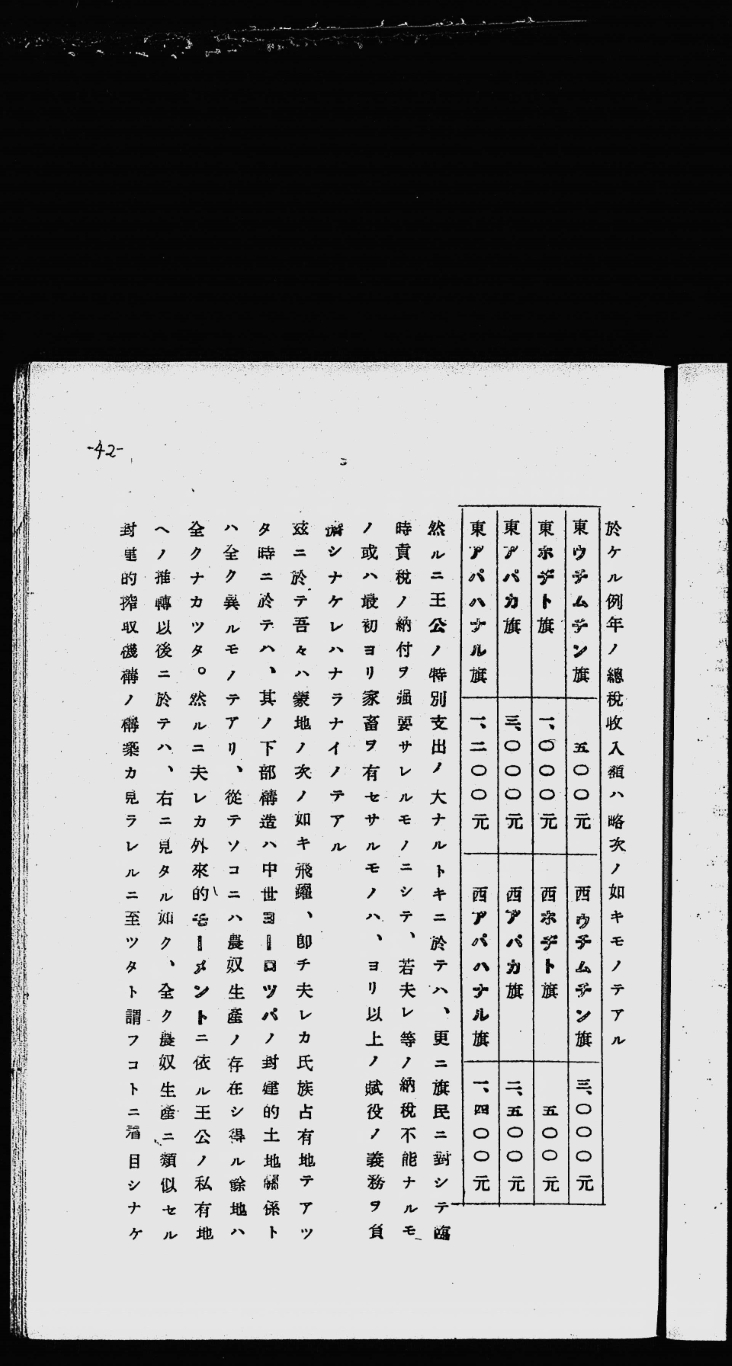 於ケル例年ノ總税收入額ハ略次ノ如キモノテアル
東ウヂムチン旗 五〇〇元 西ウヂムチン旗 三、〇〇〇元
東ホヂト旗 一、〇〇〇元 西ホヂト旗 五〇〇元
東アパカ旗 三、〇〇〇元 西アパカ旗 二、五〇〇元
東アパハナル旗 一、二〇〇元 西アパハナル旗 一、四〇〇元
然ルニ王公ノ特別支出ノ大ナルトキニ於テハ、更ニ旗民ニ對シテ臨
時貢税ノ納付ヲ强要サレルモノニシテ、若夫レ等ノ納税不能ナルモ
ノ或ハ最初ヨリ家畜ヲ有セサルモノハ、ヨリ以上ノ賦役ノ義務ヲ負
擔シナケレハナラナイノテアル
玆ニ於テ吾々ハ蒙地ノ次ノ如キ飛躍、卽チ夫レカ氏族占有地テアツ
タ時ニ於テハ、其ノ下部構造ハ中世ヨーロツパノ封建的土地關係ト
ハ全ク異ルモノテアリ、從テソコニハ農奴生産ノ存在シ得ル餘地ハ
全クナカツタ。然ルニ夫レカ外來的モーメントニ依ル王公ノ私有地
ヘノ推轉以後ニ於テハ、右ニ見タル如ク、全ク農奴生産ニ類似セル
封建的搾取機構ノ構築カ見ラレルニ至ツタト謂フコトニ着目シナケ
-42-